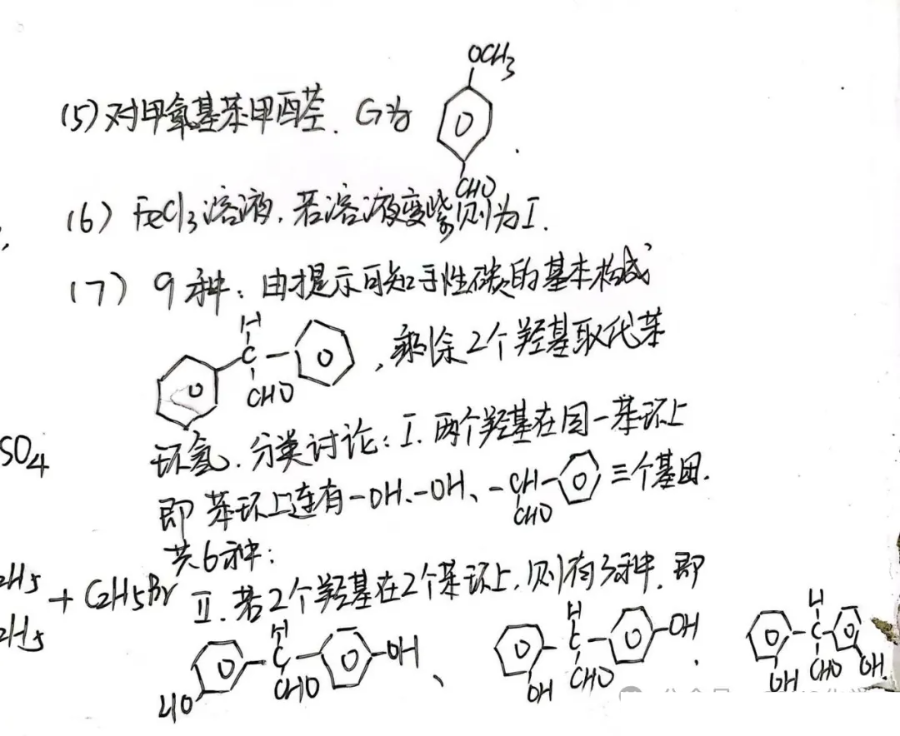 OCH3
(5) 对甲氧基苯甲醛. G为
CHO
(6) FeCl3溶液, 若溶液变紫则为I.
(7) 9种: 由提示可知手性碳的基本构成
H
C
CHO
, 剩余2个羟基取代苯
SO4
环氢. 分类讨论: I. 两个羟基在同一苯环上
即苯环上连有-OH、-OH、-CH-
CHO
三个基团.
共6种:
2H5
+ C2H5Br
2H5
II. 若2个羟基在2个苯环上, 则有3种, 即
H
C
CHO
HO
OH
、
H
C
CHO
OH
OH
、
H
C
CHO
OH
OH